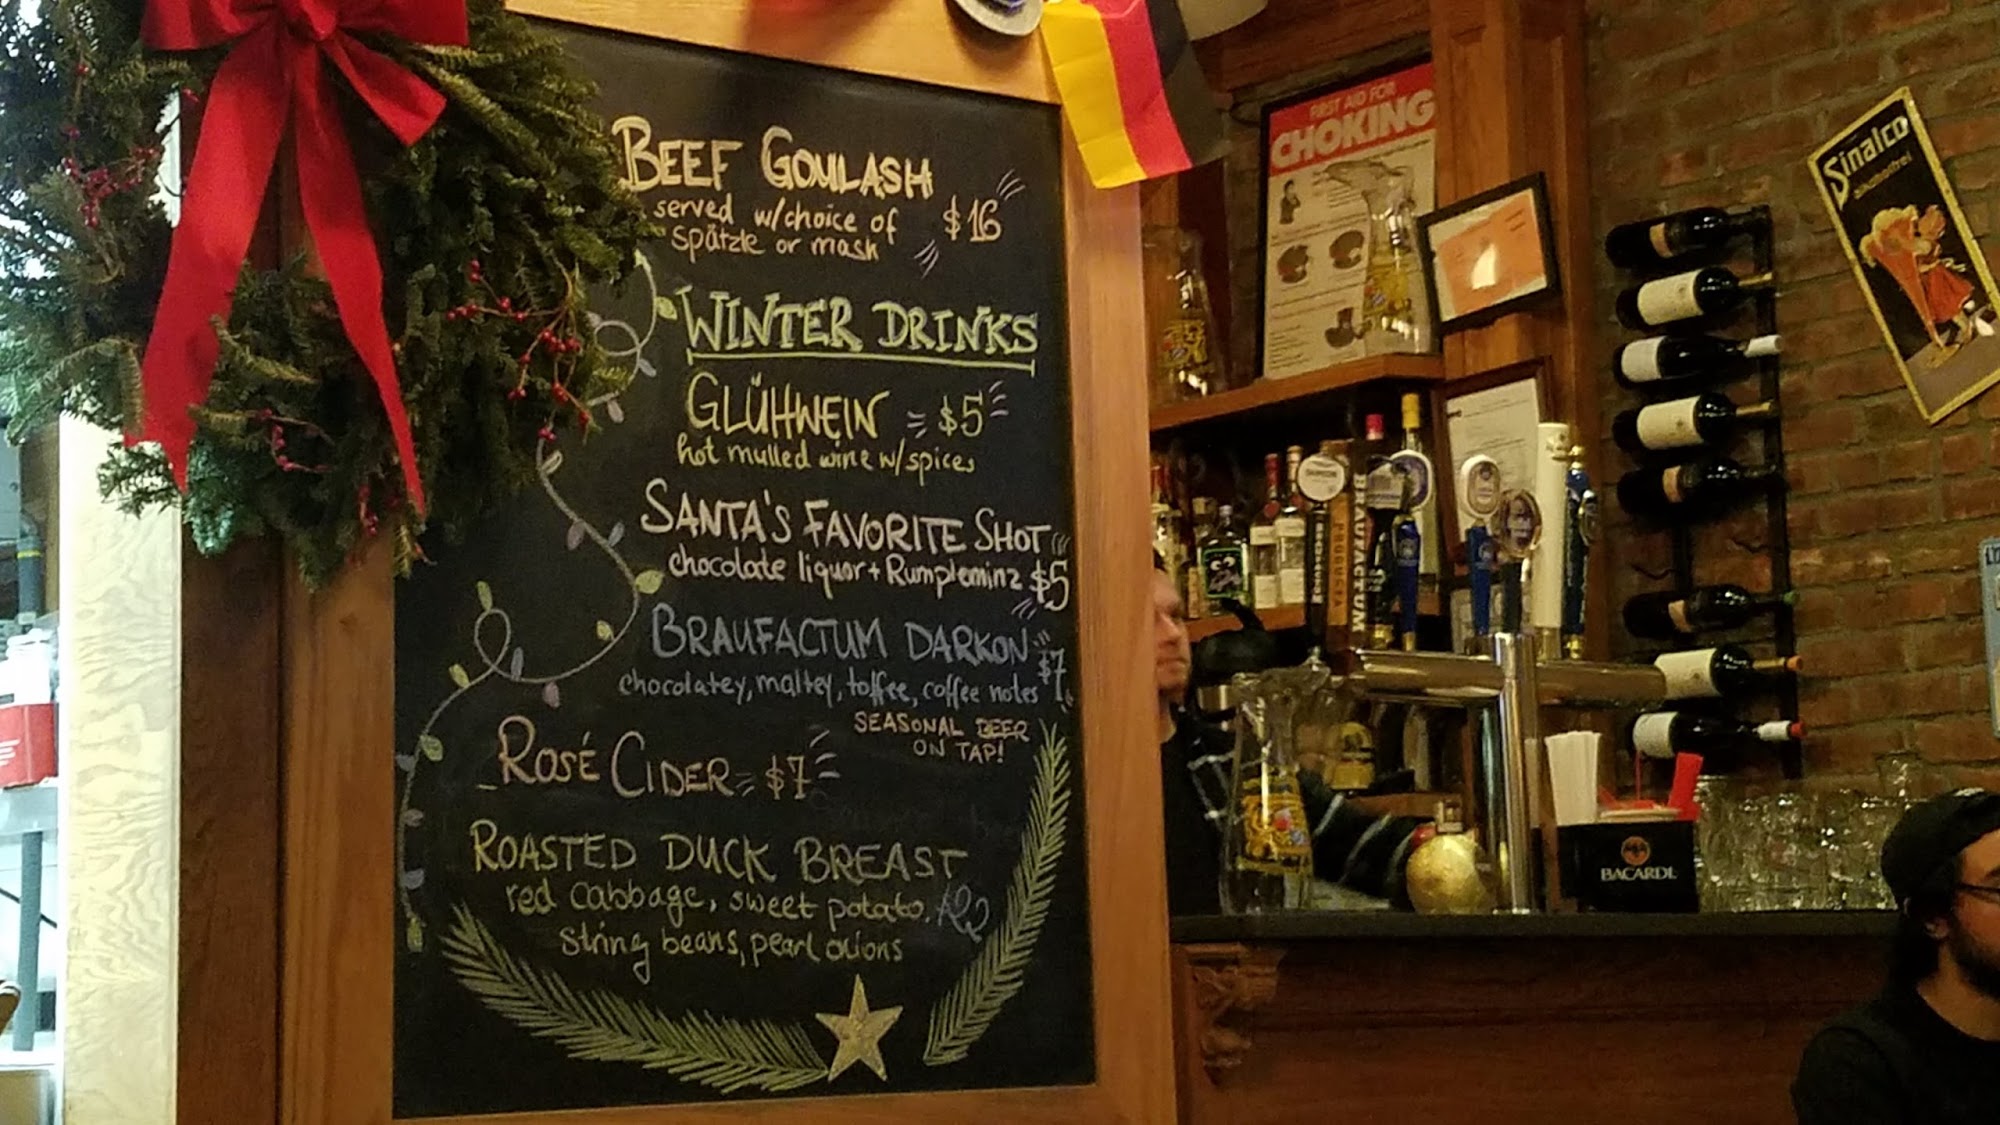 BEEF GOULASH
served w/choice of $16
spätzle or mash
WINTER DRINKS
GLÜHWEIN = $5
hot mulled wine w/spices
SANTA'S FAVORITE SHOT
chocolate liquor + Rumpleminz $5
BRAUFACTUM DARKON $7
chocolatey, maltey, toffee, coffee notes
SEASONAL BEER
ON TAP!
ROSÉ CIDER = $7
ROASTED DUCK BREAST
red cabbage, sweet potato,
string beans, pearl onions
FIRST AID FOR
CHOKING
Sinalco
BRAUFACTUM
PROGUSTA
BACARDI